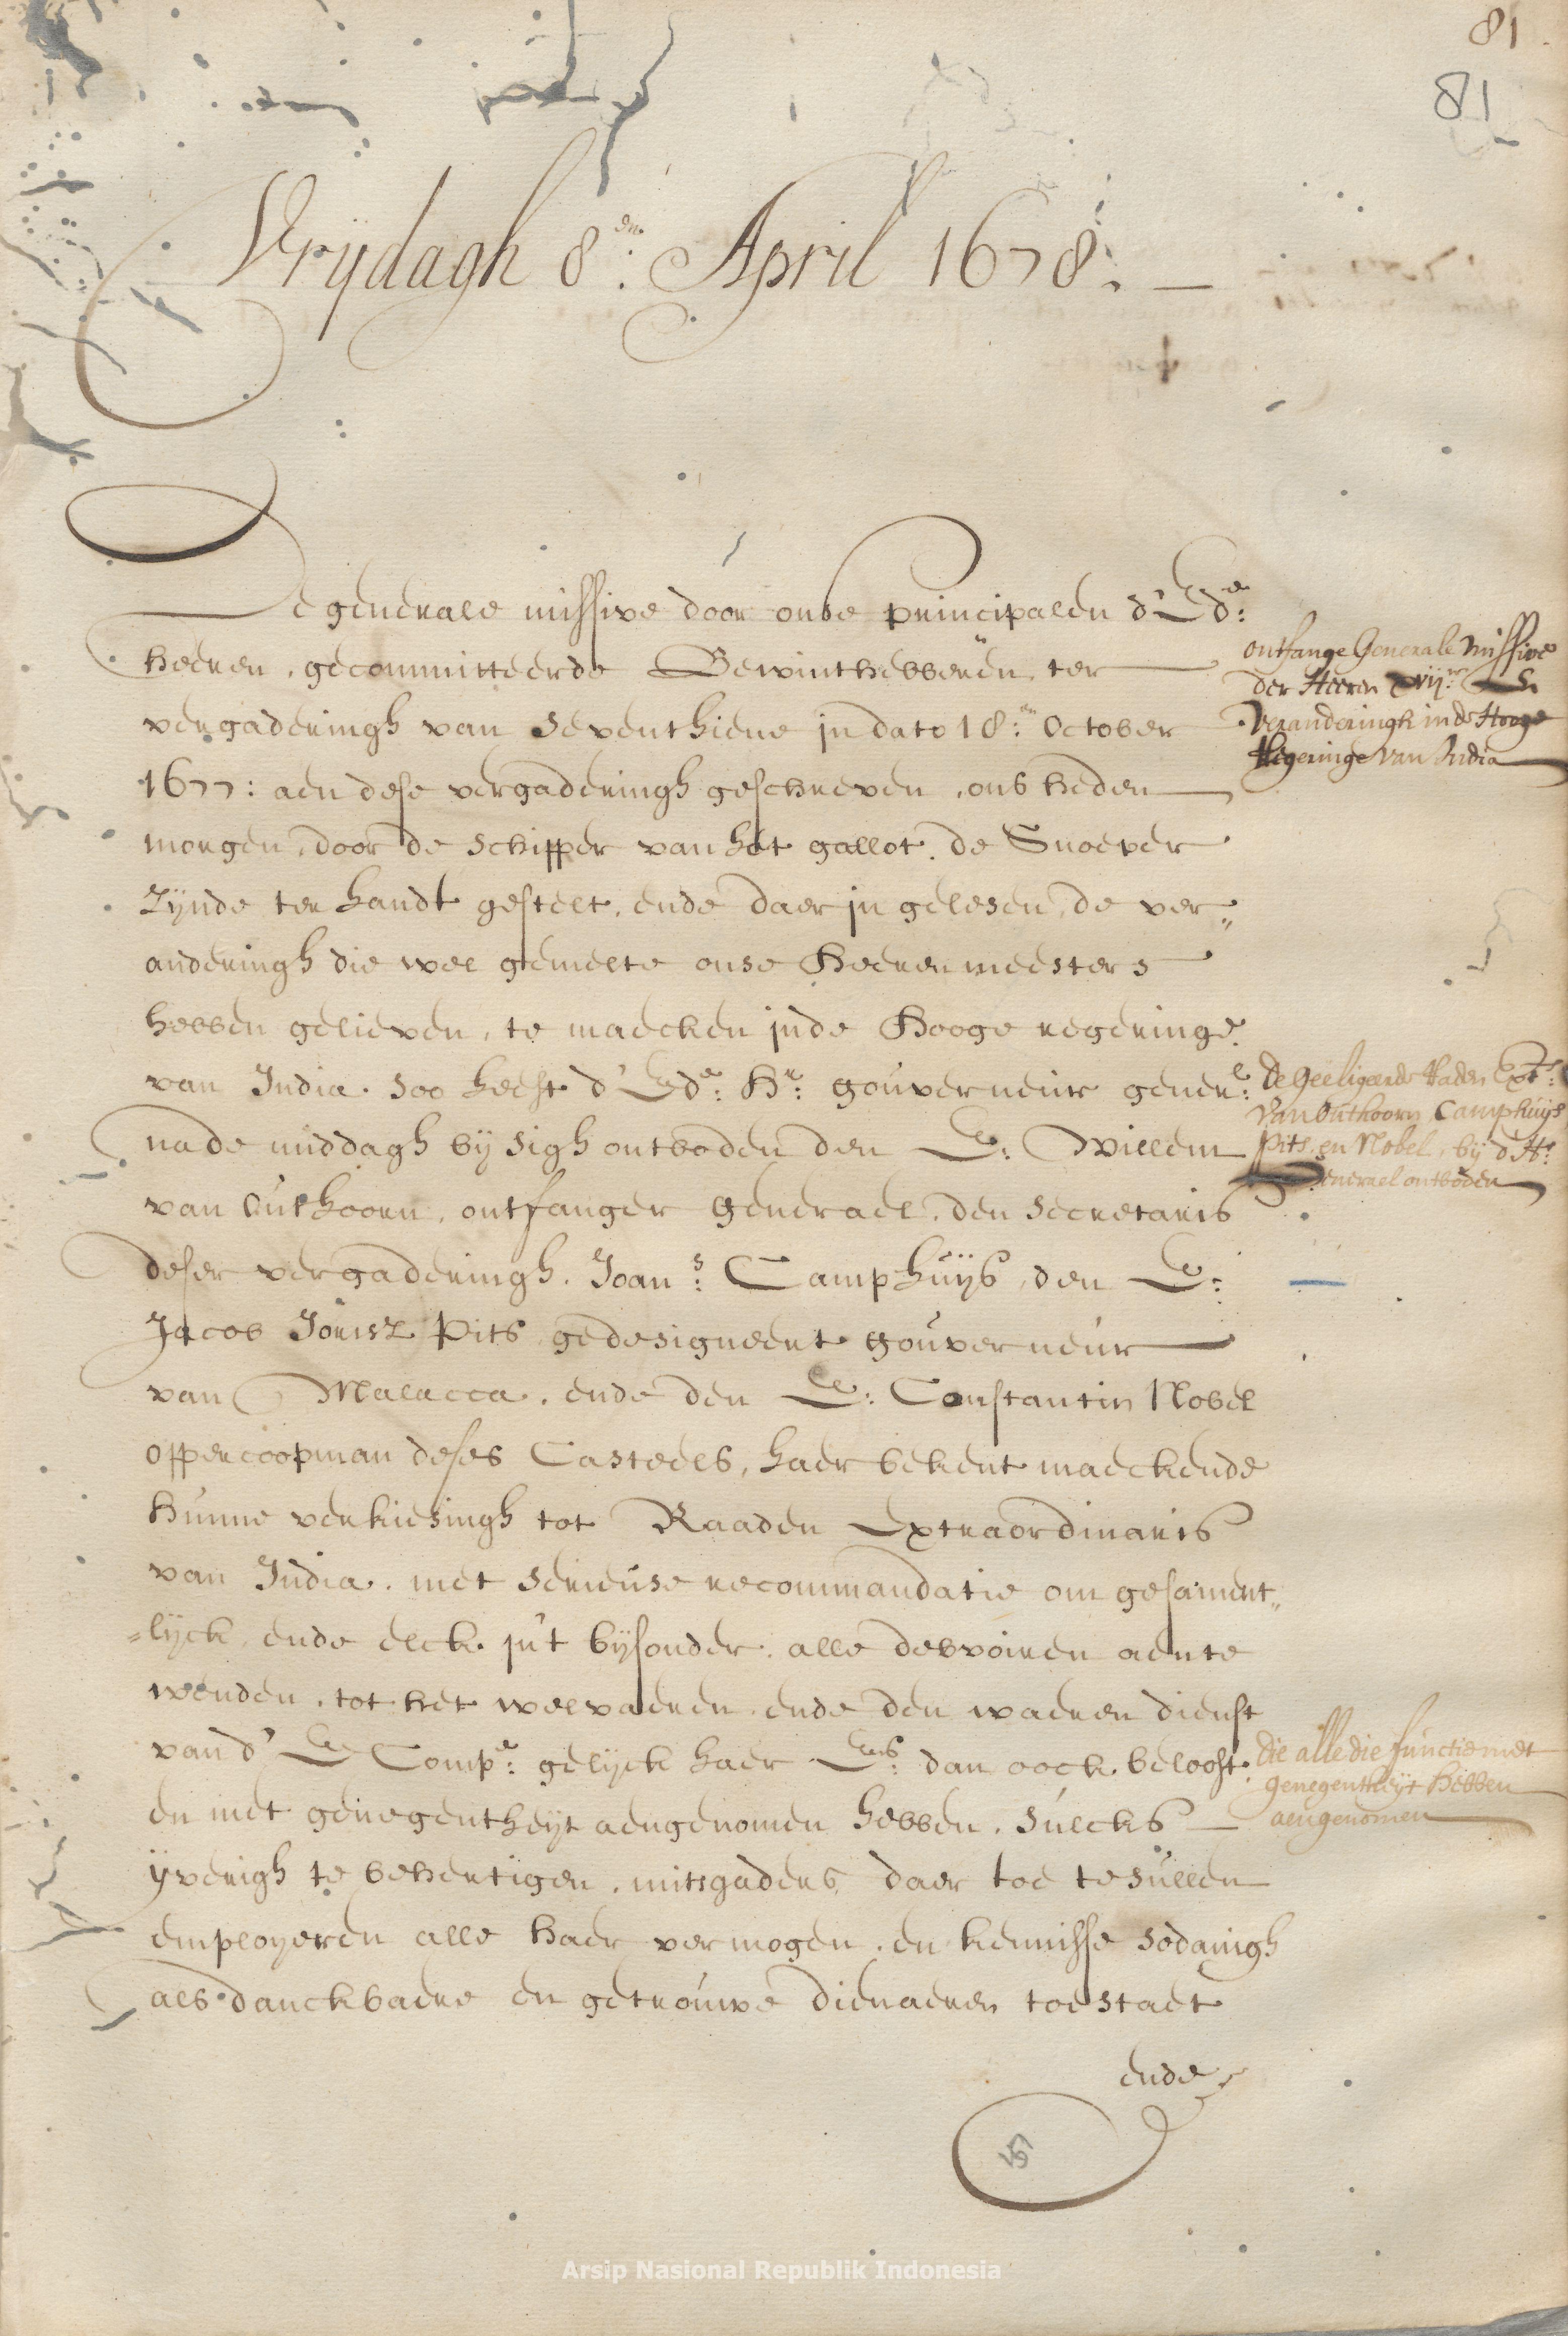 81
81
Vrijdagh 8:en April 1678: —
De generale missive door onse principalen d'Ede:
heeren, gecommitteerde Bewinthebberen, ter
vergaderingh van seventhiene in dato 18:en October
1677: aen dese vergaderingh geschreven, ons heden
morgen, door de schipper van het galliot, de Snoeper
zijnde ter handt gestelt, ende daer in gelesen, de ver„
anderingh die wel gemelte onse Heeren meesters
hebben gelieven, te maecken in de Hooge regeringe
van India. soo heeft d'Ede: Hr: gouverneur genel:
na de middagh bij sigh ontboden den E: Willem
van Outhoorn, ontfanger generael, den secretaris
deser vergaderingh. Joans: Camphuijs, den E:
Jacob Jorisz Pits gedesigneert gouverneur
van Malacca, ende den E: Constantin Nobel
oppercoopman deses Casteels, haer bekent maeckende
hunne verkiesingh tot Raaden Extraordinaris
van India. met serieuse recommandatie om gesament„
„lijck, ende elck in't bijsonder, alle devvoiren aen te
wenden, tot het welvaeren, ende den waeren dienst
van d'E Compe: gelijck haer Ees: dan oock belooft
en met genegentheijt aengenomen hebben, sulcks
ijverigh te behertigen, mitsgaders, daer toe te sullen
employeren alle haer vermogen, en kennisse sodanigh
als danckbaere en getrouwe dienaeren toestaet
ende
ontfange Generale missive
der Heeren xvijen
veranderingh in de Hooge
Regeringe van India
de geëligeerde Raden Exts:
van Outhoorn, Camphuijs
Pits, en Nobel, bij d'Hr:
Generael ontboden
die alle die functie met
genegentheijt hebben
aengenomen
Arsip Nasional Republik Indonesia